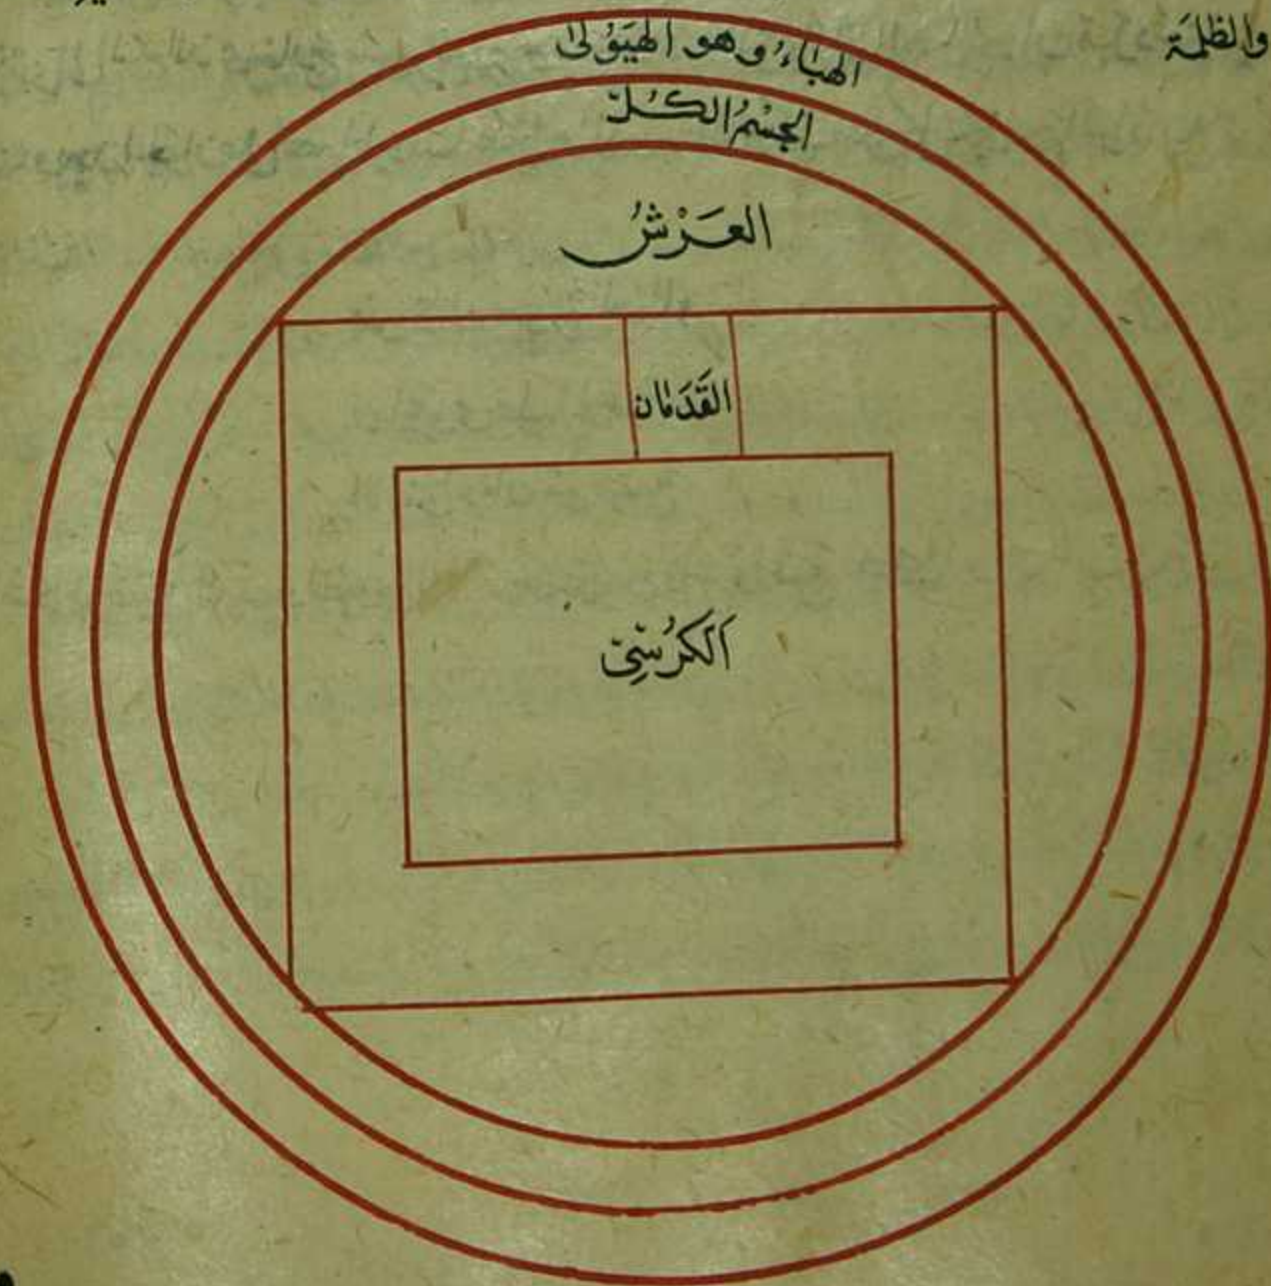 والظلمة
الهَبَاءُ وهو الهَيَوْلىٰ
الجِسْمُ الكُلّ
العَرْشُ
القَدَمَان
اَلكُرْسِيّ